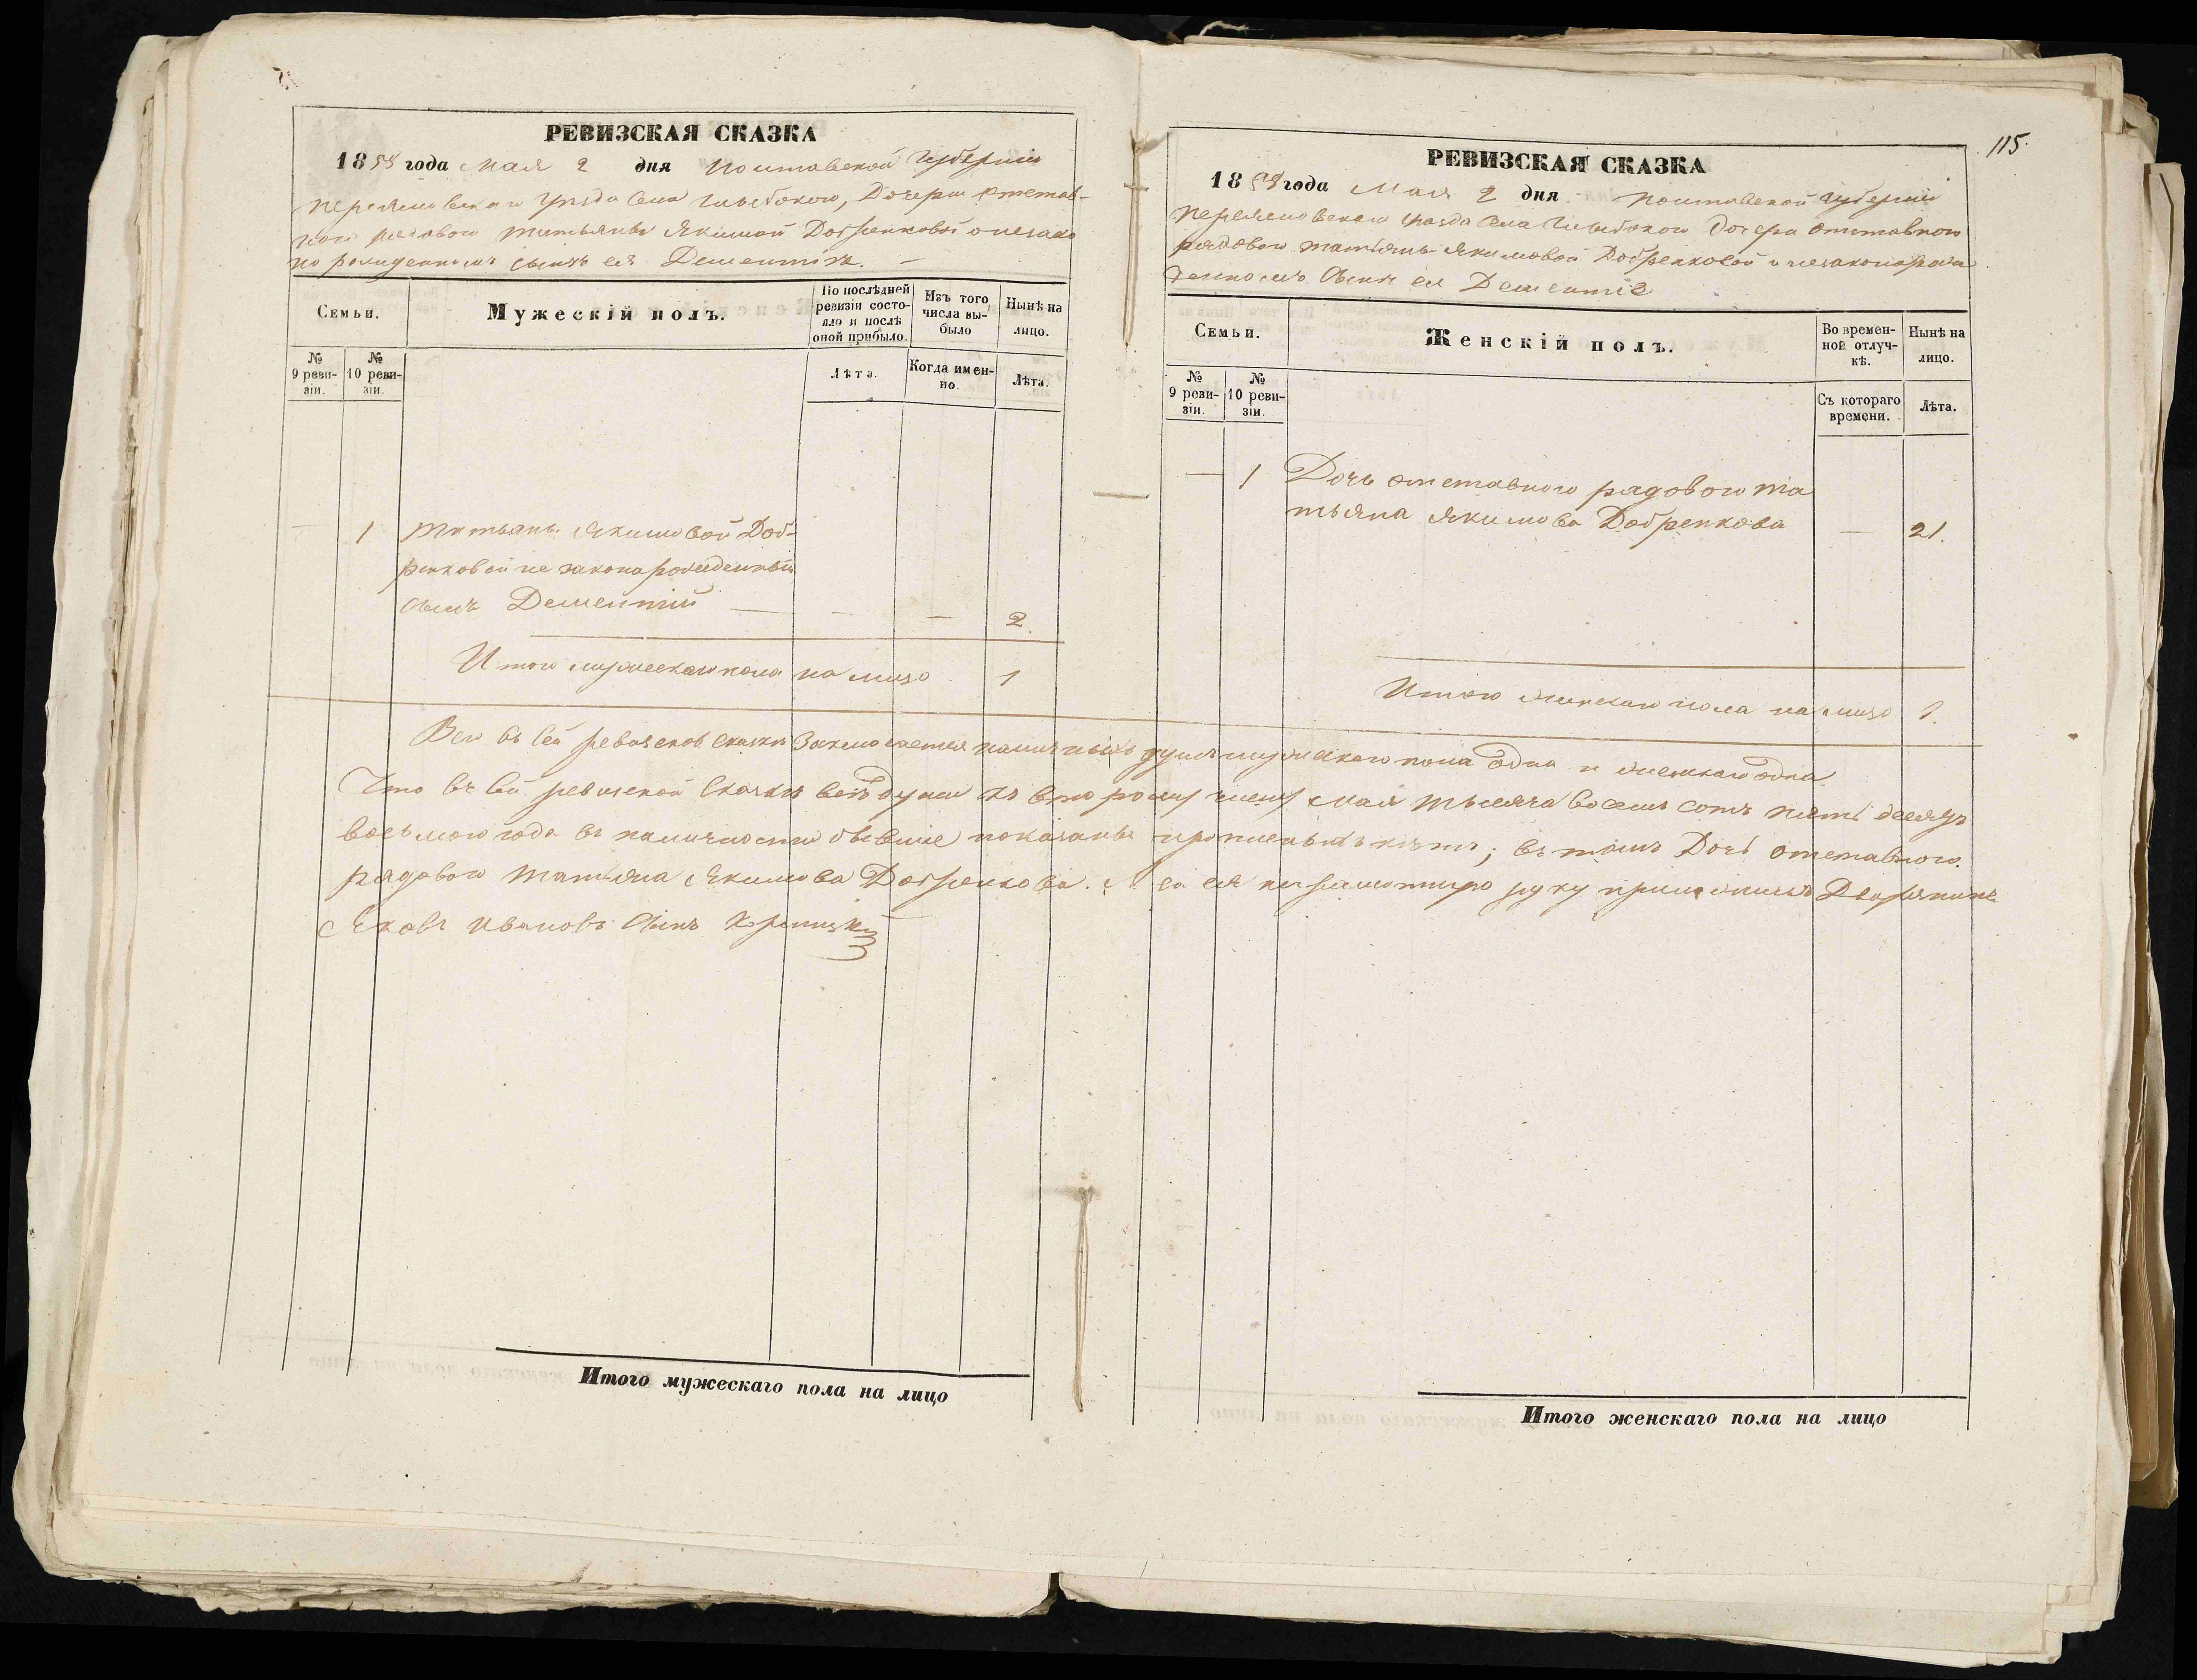 РЕВИЗСКАЯ СКАЗКА
1858 года Мая 2 дня Полтавской Губернии
Переяславскаго уезда села Глыбокого, Дочери отстав-
ного рядового Татьяны Якимовой Добренковой о незако
но рожденномъ сынѣ ея Дементіѣ. —
Семьи.
Мужескій полъ.
По послѣдней ревизіи состо-яло и послѣ оной прибыло.
Изъ того числа вы-было
Нынѣ на лицо.
№ 9 реви-зіи.
№ 10 реви-зіи.
Лѣта.
Когда имен-но.
Лѣта.
— 1 Татьяны Якимовой Доб-
ренковой не законарожденный
сынъ Дементій — — — 2.
Итого мужескаго пола на лицо 1
115.
РЕВИЗСКАЯ СКАЗКА
1858 года Мая 2 дня Полтавской губерніи
Переяславскаго уезда села Глыбокого дочери отставного
рядового Татьяны Якимовой Добренковой и незаконорож
денномъ сынѣ ея Дементіѣ
Семьи.
Женскій полъ.
Во времен-ной отлуч-кѣ.
Нынѣ на лицо.
№ 9 реви-зіи.
№ 10 реви-зіи.
Съ котораго времени.
Лѣта.
— 1 Дочь отставного рядового Та
тьяна Якимова Добренкова — 21.
Итого женскаго пола на лицо 1.
Всего въ сей ревизской сказкѣ заключается наличныхъ душъ мужескаго пола одна и женскаго одна
Что въ сей ревизской сказкѣ всѣ души къ второму числу мая тысяча восемь сотъ пять десятъ
восьмого года въ наличности бывшіе показаны ; въ томъ Дочь отставного
рядового Татьяна Якимова Добренкова. А за ея неграмотную руку приложилъ Дворянинъ
Яковъ Ивановъ сынъ
Итого мужескаго пола на лицо
Итого женскаго пола на лицо